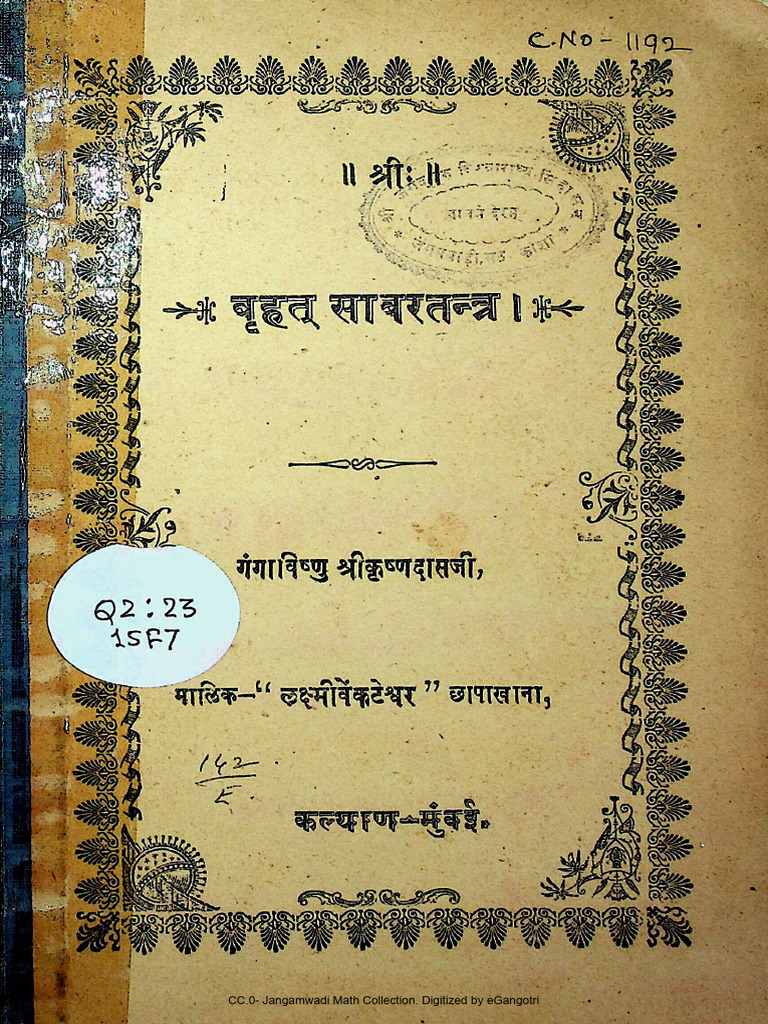 C.NO - 1192
॥ श्रीः ॥
बृहत् साबरतन्त्र ।
गंगाविष्णु श्रीकृष्णदासजी,
Q2:23
15F7
मालिक–“ लक्ष्मीवेंकटेश्वर ” छापाखाना,
142
E.
कल्याण–मुंबई.
CC.0- Jangamwadi Math Collection. Digitized by eGangotri